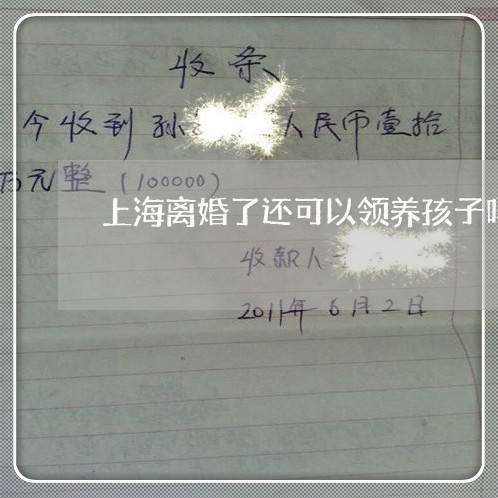 收条
今收到孙 人民币壹拾
万元整(100000)
上海离婚了还可以领养孩子
收款人
2011年6月2日